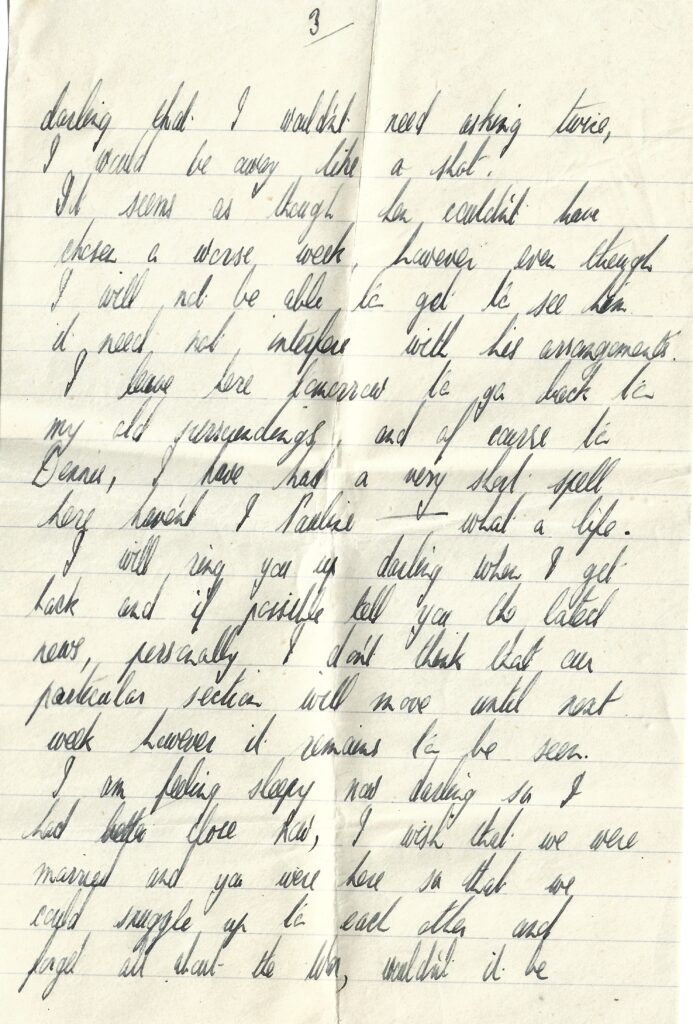 3
darling that I wouldn't need asking twice,
I would be away like a shot.
It seems as though Len couldn't have
chosen a worse week, however even though
I will not be able to get to see him
it need not interfere with his arrangements.
I leave here tomorrow to go back to
my old surroundings, and of course to
Dennis, I have had a very short spell
here haven't I Pauline — what a life.
I will ring you up darling when I get
back and if possible tell you the latest
news, personally I don't think that our
particular section will move until next
week however it remains to be seen.
I am feeling sleepy now darling so I
had better close now, I wish that we were
married and you were here so that we
could snuggle up to each other and
forget all about the War, wouldn't it be